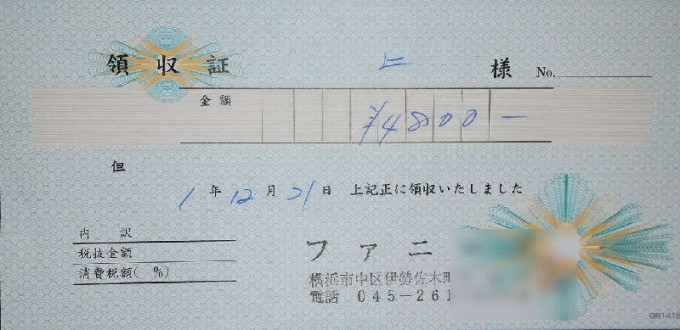 領収証 上 様 No.
金額 ¥4800-
但
1年12月21日 上記正に領収いたしました
内訳
税抜金額
消費税額( %)
ファニ
横浜市中区伊勢佐木町
電話 045-261
GB1418